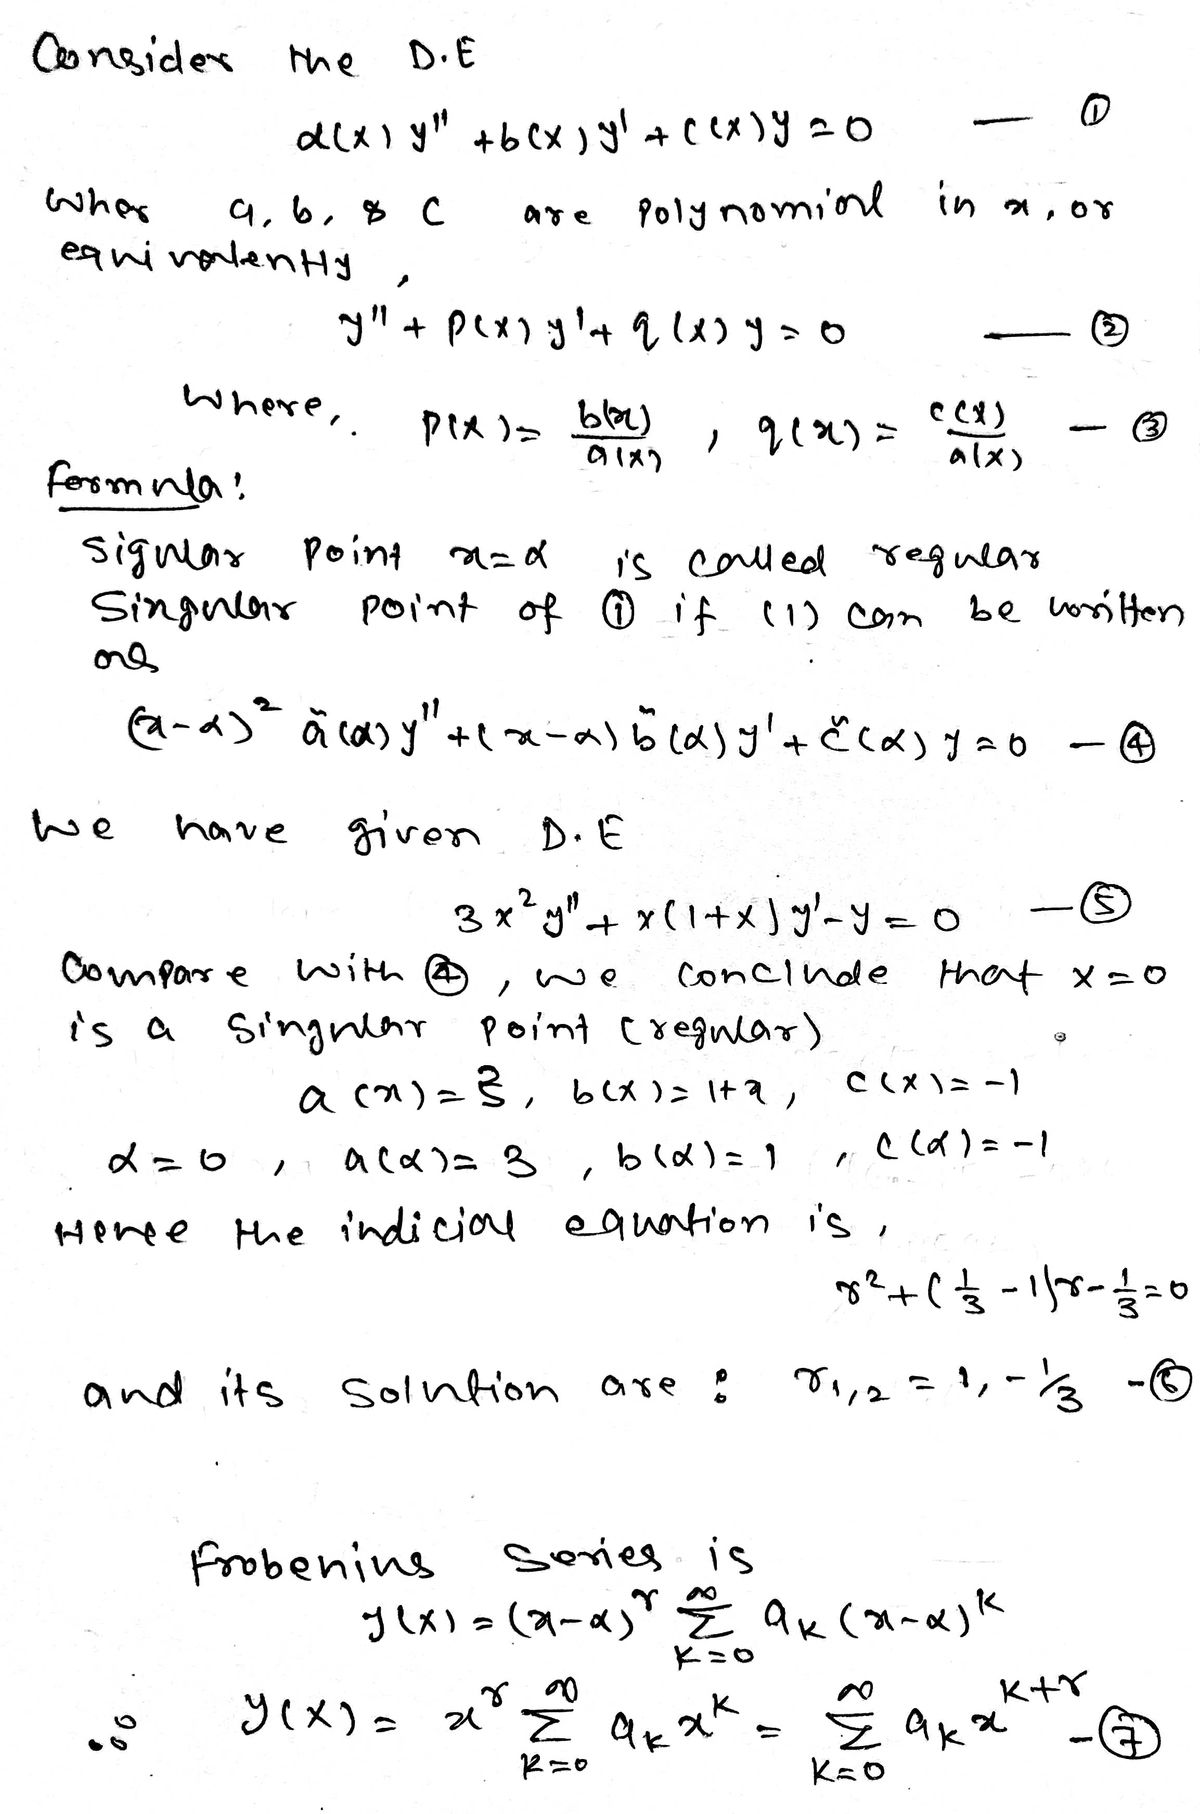 Consider the D.E
a(x) y'' + b(x) y' + c(x) y = 0 — ①
wher a, b, & c are polynomial in x, or
equivalently,
y'' + p(x) y' + q(x) y = 0 — ②
where, p(x) = b(x)/a(x) , q(x) = c(x)/a(x) — ③
formula:
Sigular point x=α is called regular
Singular point of ① if (1) can be written
as
(x-α)² ã(α) y'' + (x-α) b̃(α) y' + c̃(α) y = 0 — ④
We have given D.E
3x² y'' + x(1+x) y' - y = 0 — ⑤
Compare with ④, we conclude that x=0
is a singular point (regular)
a(x) = 3, b(x) = 1+x, c(x) = -1
α = 0, a(α) = 3, b(α) = 1, c(α) = -1
Hence the indicial equation is,
r² + (1/3 - 1)r - 1/3 = 0
and its solution are : r₁,₂ = 1, -1/3 - ⑥
Frobenius Series is
y(x) = (x-α)^r ∑_{k=0}^{∞} a_k (x-α)^k
∴ y(x) = x^r ∑_{k=0}^{∞} a_k x^k = ∑_{k=0}^{∞} a_k x^{k+r} - ⑦